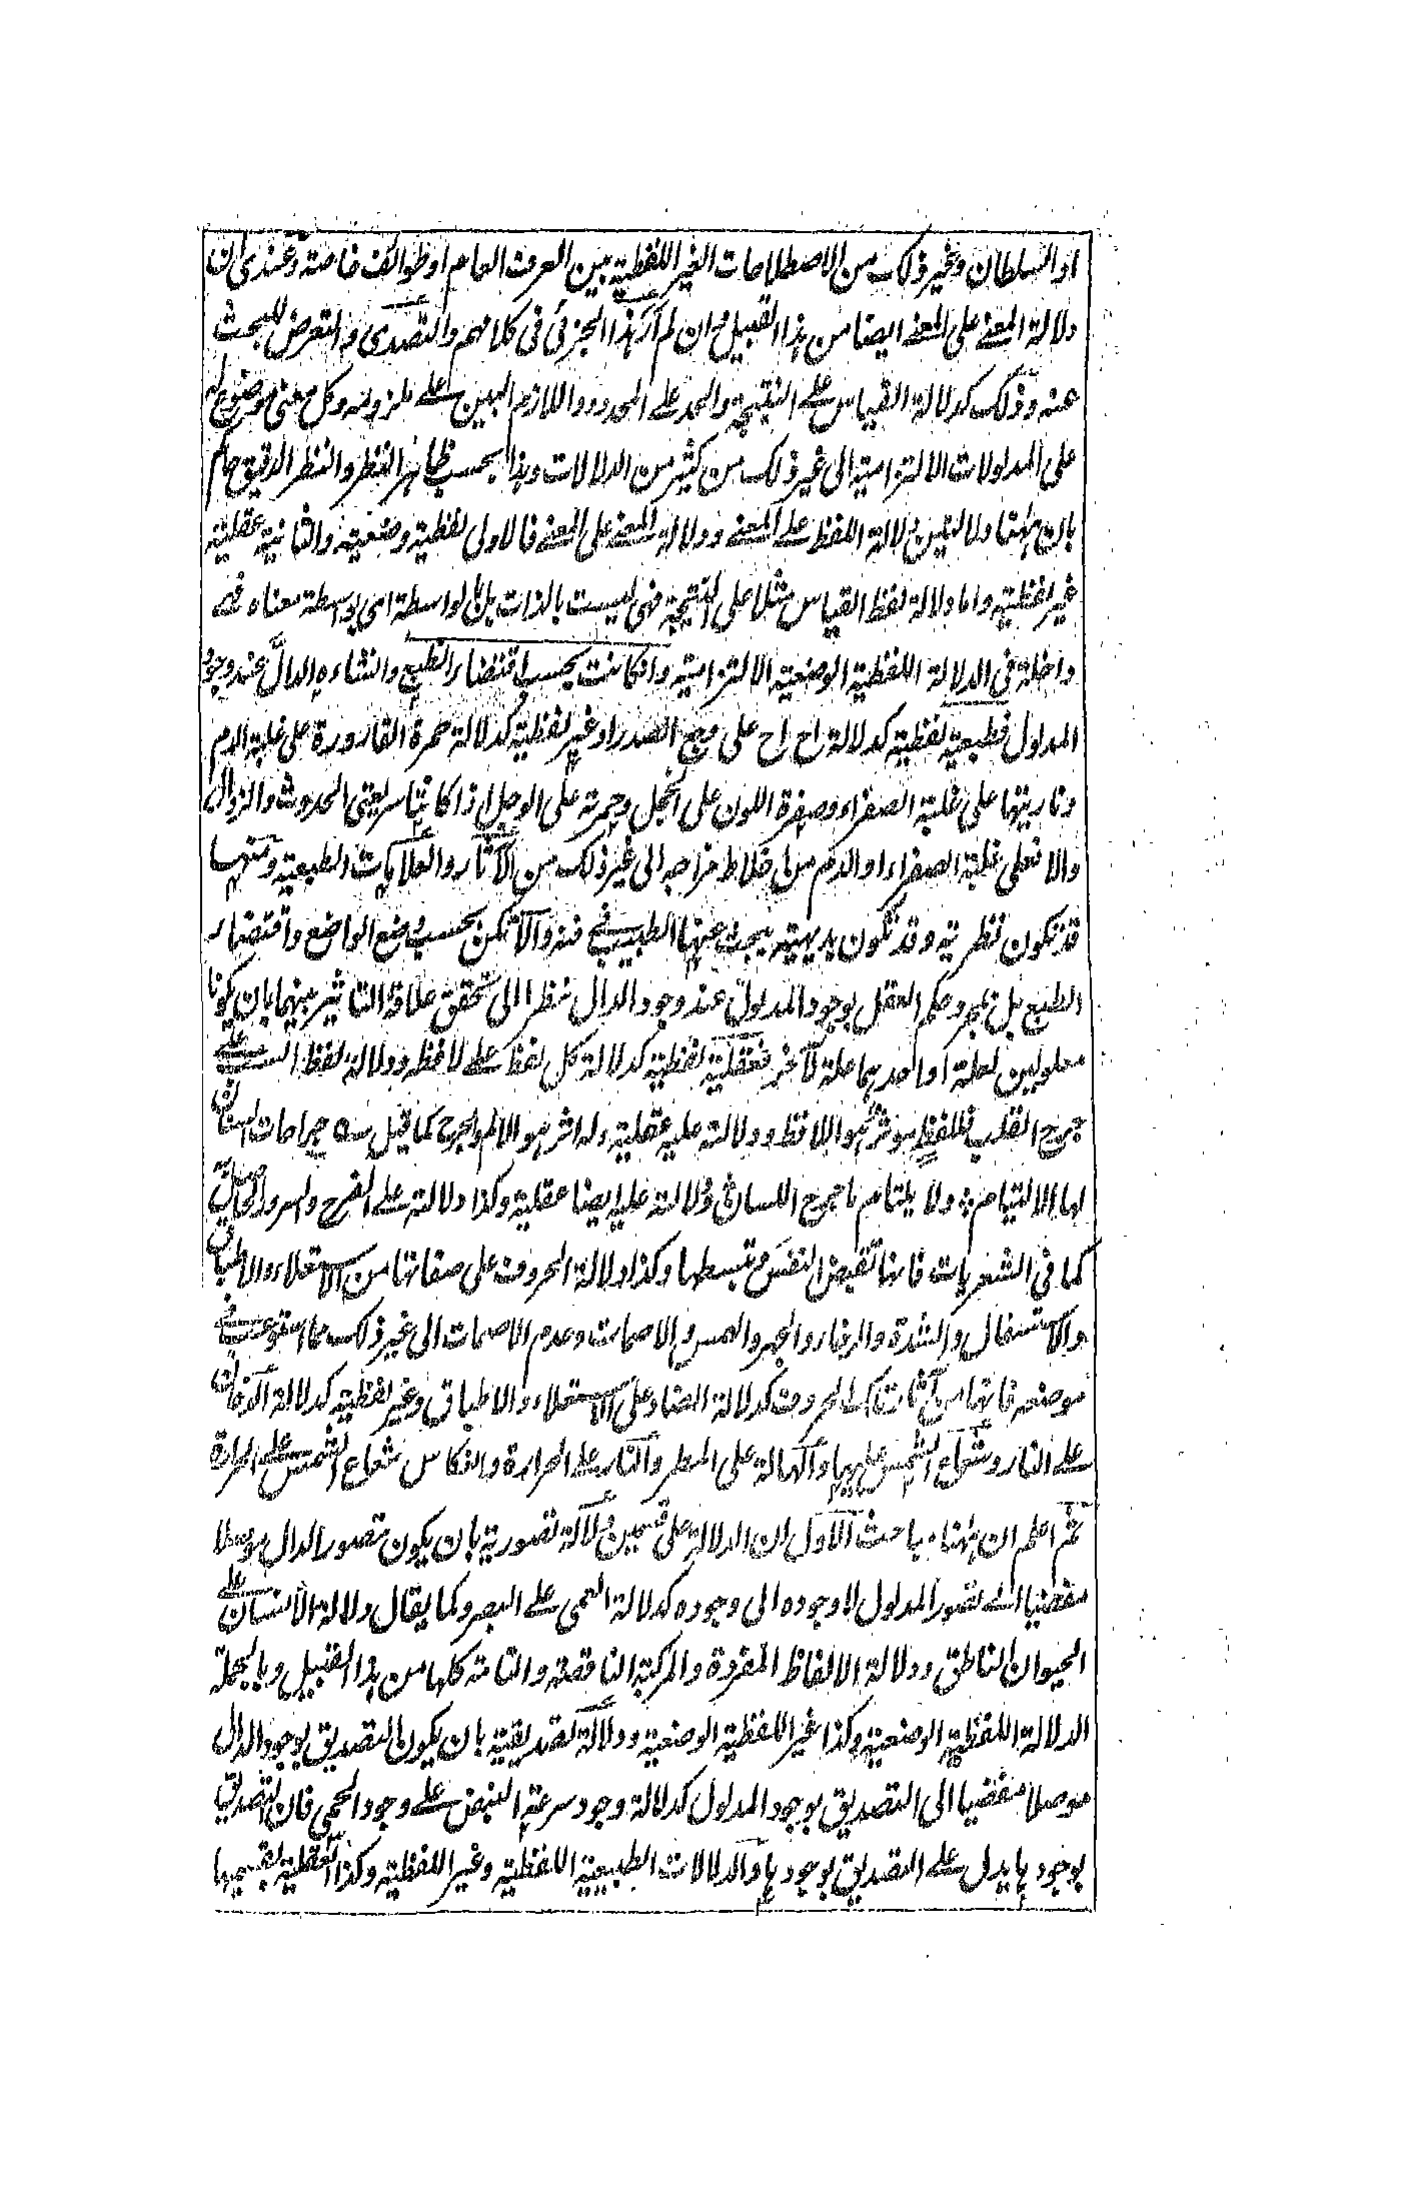 او السلطان وغير ذلك من الاصطلاحات الغير اللفظية بين العرف العام او طوائف خاصة وعندي ان
دلالة المعنى على المعنى ايضا من هذا القبيل وان لم ار هذا الجزئي في كلامهم والتصدي والتعرض للبحث
عنه وذلك كدلالة القياس على النتيجة والحد على المحدود واللازم البين على ملزومه وكل معنى موضوع له
على المدلولات الالتزامية الى غير ذلك من كثير من الدلالات وهذا بحسب ظاهر النظر والنظر الدقيق حاكم
بان ههنا دلالتين دلالة اللفظ على المعنى ودلالة المعنى على المعنى فالاولى لفظية وضعية والثانية عقلية
غير لفظية واما دلالة لفظ القياس مثلا على النتيجة فهي ليست بالذات بل بالواسطة اى بواسطة معناه فهى
داخلة في الدلالة اللفظية الوضعية الالتزامية وان كانت بحسب اقتضاء الطبع وانشاءه الدال عند وجود
المدلول فطبعية لفظية كدلالة اح اح على وجع الصدر او غير لفظية كدلالة حمرة القارورة على غلبة الدم
وناريتها على غلبة الصفراء وصفرة اللون على الخجل وحمرته على الوجل اذا كانتا سريعتى الحدوث والزوال
والا فعلى غلبة الصفراء او الدم من اخلاط مزاجه الى غير ذلك من الآثار والعلامات الطبعية ومنها
قد تكون نظرية وقد تكون بديهية يبحث عنها الطبيب في فنه والا تكن بحسب وضع الواضع واقتضاء
الطبع بل بمجرد حكم العقل بوجود المدلول عند وجود الدال نظرا الى تحقق علاقة التاثير بينهما بان يكونا
معلولين لعلة او احدهما علة لآخر فعقلية لفظية كدلالة كل لفظ على لافظه ودلالة لفظ السب على
جرح القلب فللفظ مؤثر هو اللافظ ودلالته عليه عقلية وله اثر هو الالم والجرح كما قيل جراحات السنان
لها الالتيام ولا يلتام ما جرح اللسان ودلالته عليه ايضا عقلية وكذا دلالته على الفرح والسرور الحاصل
كما في الشعريات فانها تقبض النفس وتبسطها وكذا دلالة الحروف على صفاتها من الاستعلاء والاطباق
والاستفال والشدة والرخاء والجهر والهمس والاصمات وعدم الاصمات الى غير ذلك مما استوعب في
موضعه فانها من آثار تلك الحروف كدلالة الضاد على الاستعلاء والاطباق وغير لفظية كدلالة الدخان
على النار وشعاع الشمس عليها والهالة على المطر والنار على الحرارة وانعكاس شعاع الشمس على الحرارة
ثم اعلم ان ههنا مباحث الاول ان الدلالة على قسمين دلالة تصورية بان يكون تصور الدال موصلا
مفضيا الى تصور المدلول لا وجوده الى وجوده كدلالة العمى على البصر وكما يقال دلالة الانسان على
الحيوان الناطق ودلالة الالفاظ المفردة والمركبة الناقصة والتامة كلها من هذا القبيل وبالجملة
الدلالة اللفظية الوضعية وكذا غير اللفظية الوضعية ودلالة تصديقية بان يكون التصديق بوجود الدال
موصلا مفضيا الى التصديق بوجود المدلول كدلالة وجود سرعة النبض على وجود الحمى فان التصديق
بوجودها يدل على التصديق بوجودها والدلالات الطبيعية اللفظية وغير اللفظية وكذا العقلية بقسميها